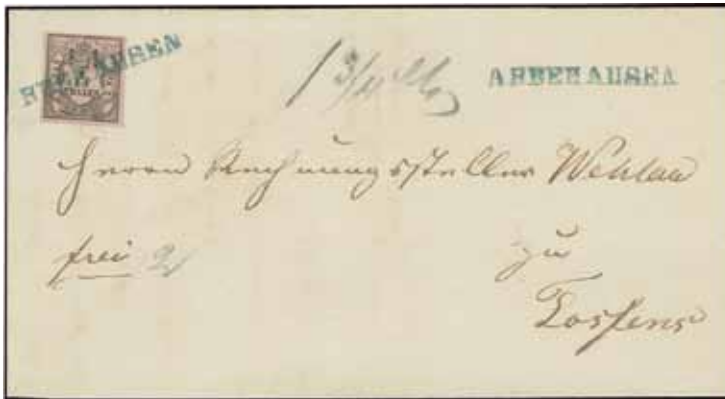 ABBEHAUSEN
1 3/4
Herrn Rechnungssteller Wehlau
frei 2
zu
Tossens